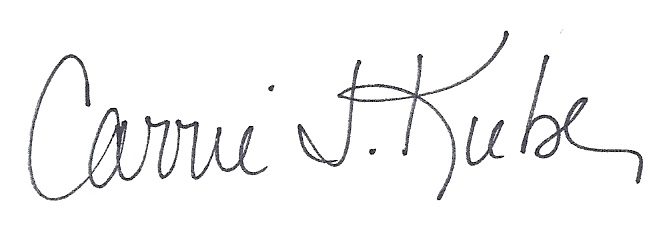 Carrie J. Kube